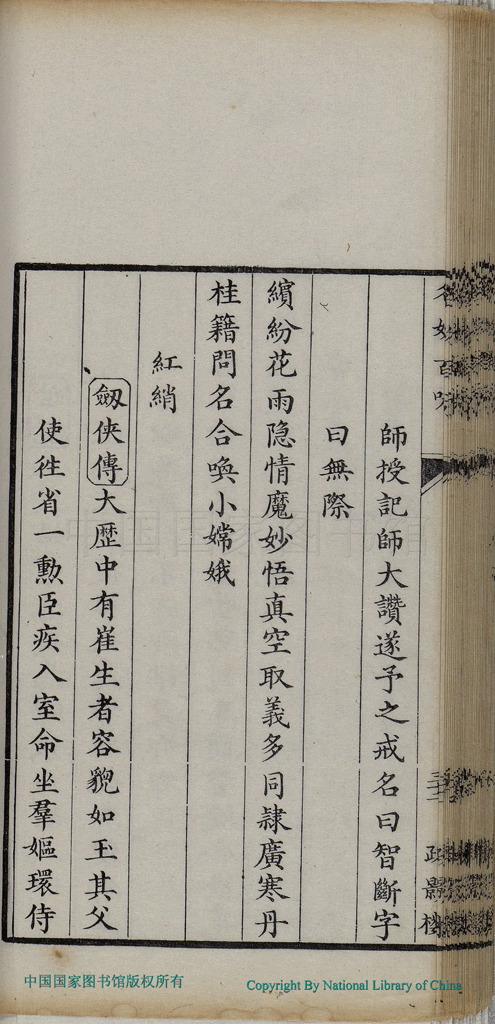 師授記師大讚遂予之戒名曰智斷字
曰無際
繽紛花雨隐情魔妙悟真空取義多同隷廣寒丹
桂籍問名合喚小嫦娥
紅綃
劔俠傳大歷中有崔生者容貌如玉其父
使徃省一勳臣疾入室命坐羣嫗環侍
中国国家图书馆版权所有
Copyright By National Library of China